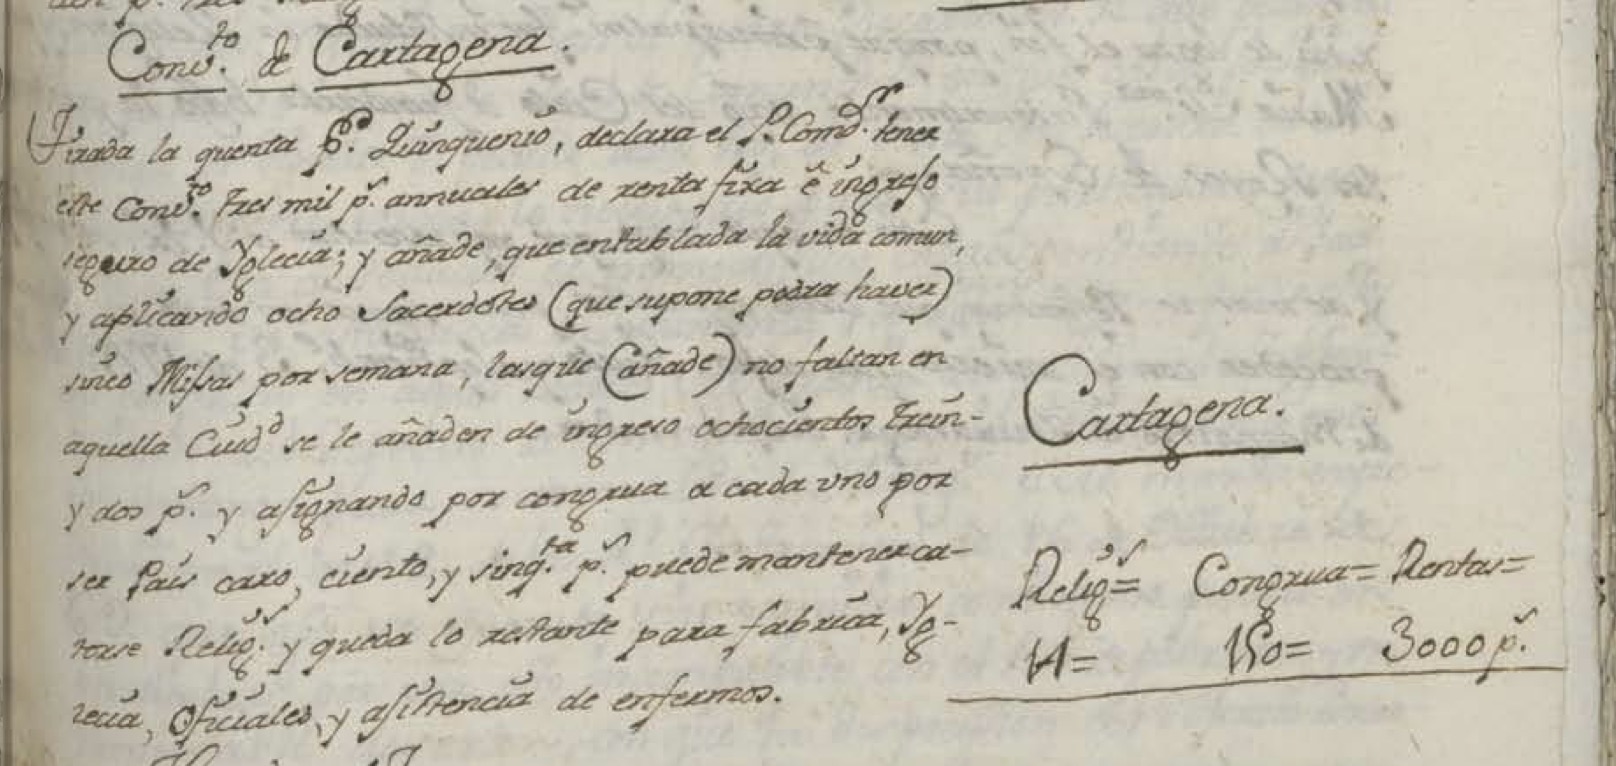 Conv.to de Cartagena.
Tirada la quenta p.r Quinquenio, declara el P. Comd.r tener
este Conv.to tres mil p.s annuales de renta fixa è ingreso
seguro de Yglecia; y añade, que entablada la vida comun,
y aplicando ocho Sacerdotes (que supone podra haver)
sinco Missas por semana, las que (añade) no faltan en
aquella Ciud.d se le añaden de ingreso ochocientos trein-
y dos p.s y asignando por congrua a cada uno por
ser Pais caro, ciento, y sinq.ta p.s puede mantener ca-
torse Relig.s y queda lo restante para fabrica, Yg-
lecia, Oficiales, y asistencia de enfermos.
Cartagena.
Relig.s= Congrua= Rentas=
14= 150= 3000 p.s